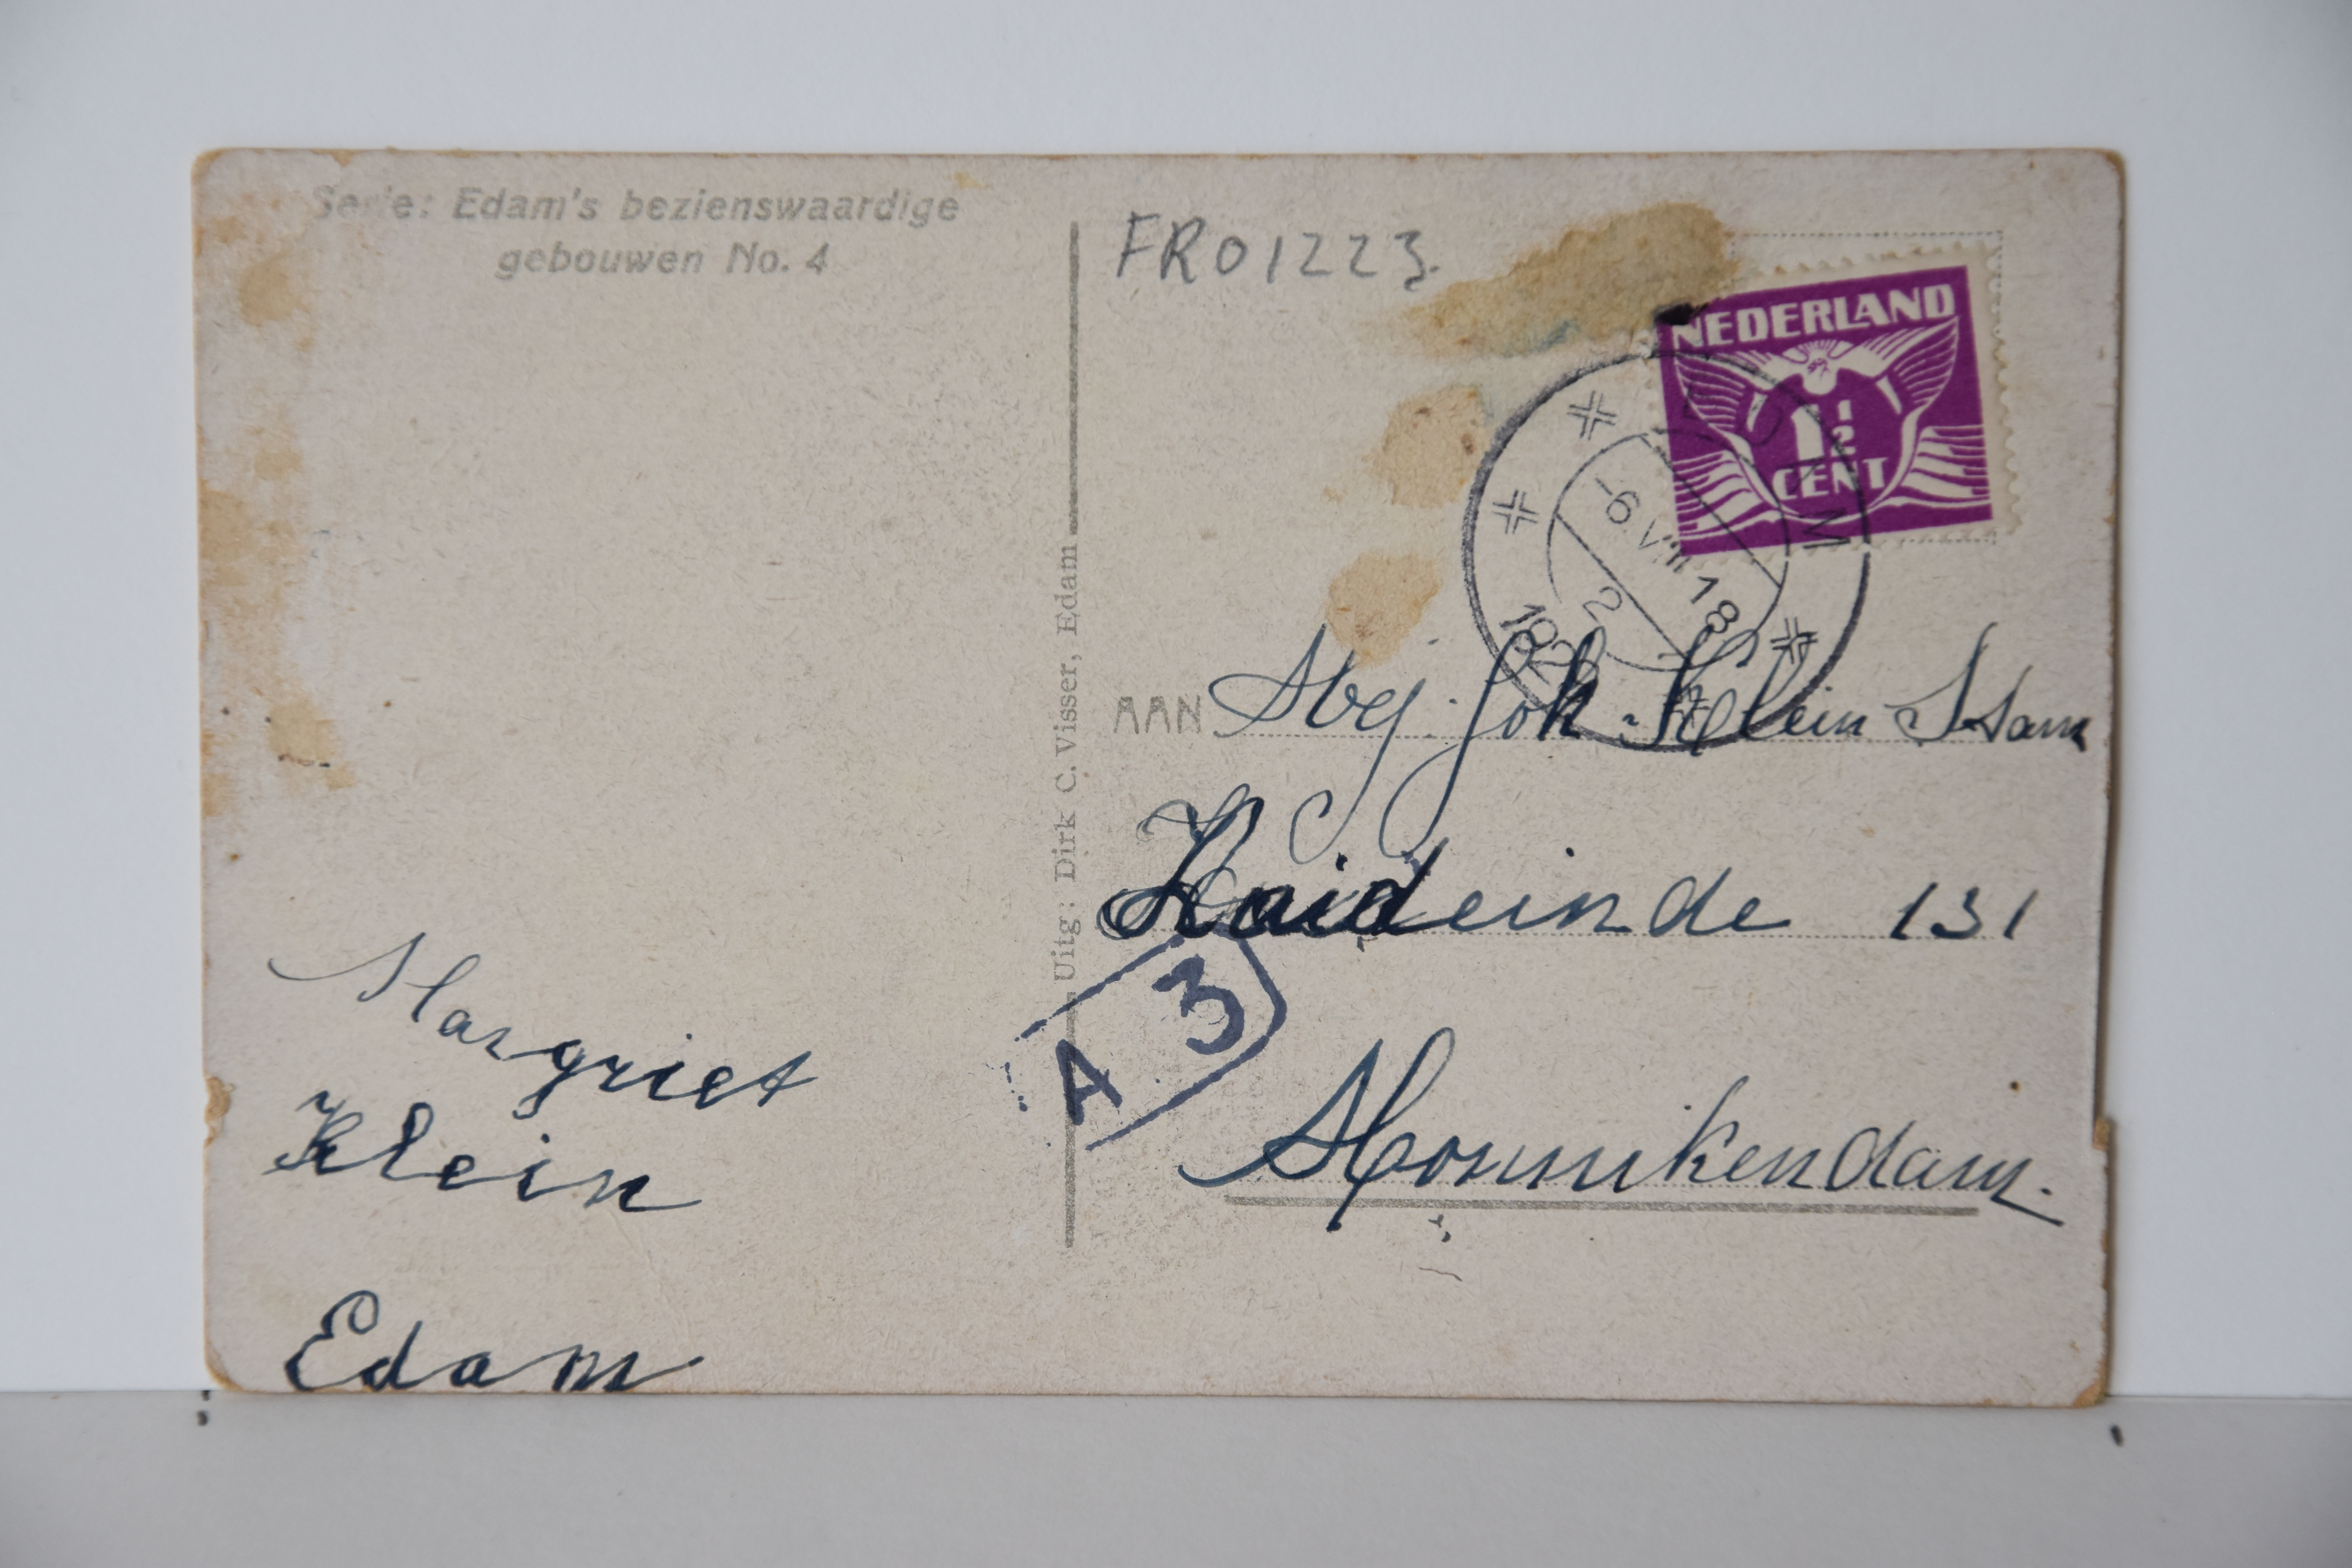 Serie: Edam's bezienswaardige
gebouwen No. 4
FR01223.
NEDERLAND
1 1/2
CENT
EDAM
-6.VIII 18
2
AAN Mej. Joh. Klein
Uitg: Dirk C. Visser, Edam
Zuideinde 131
A 3
Monnikendam.
Margriet
Klein
Edam